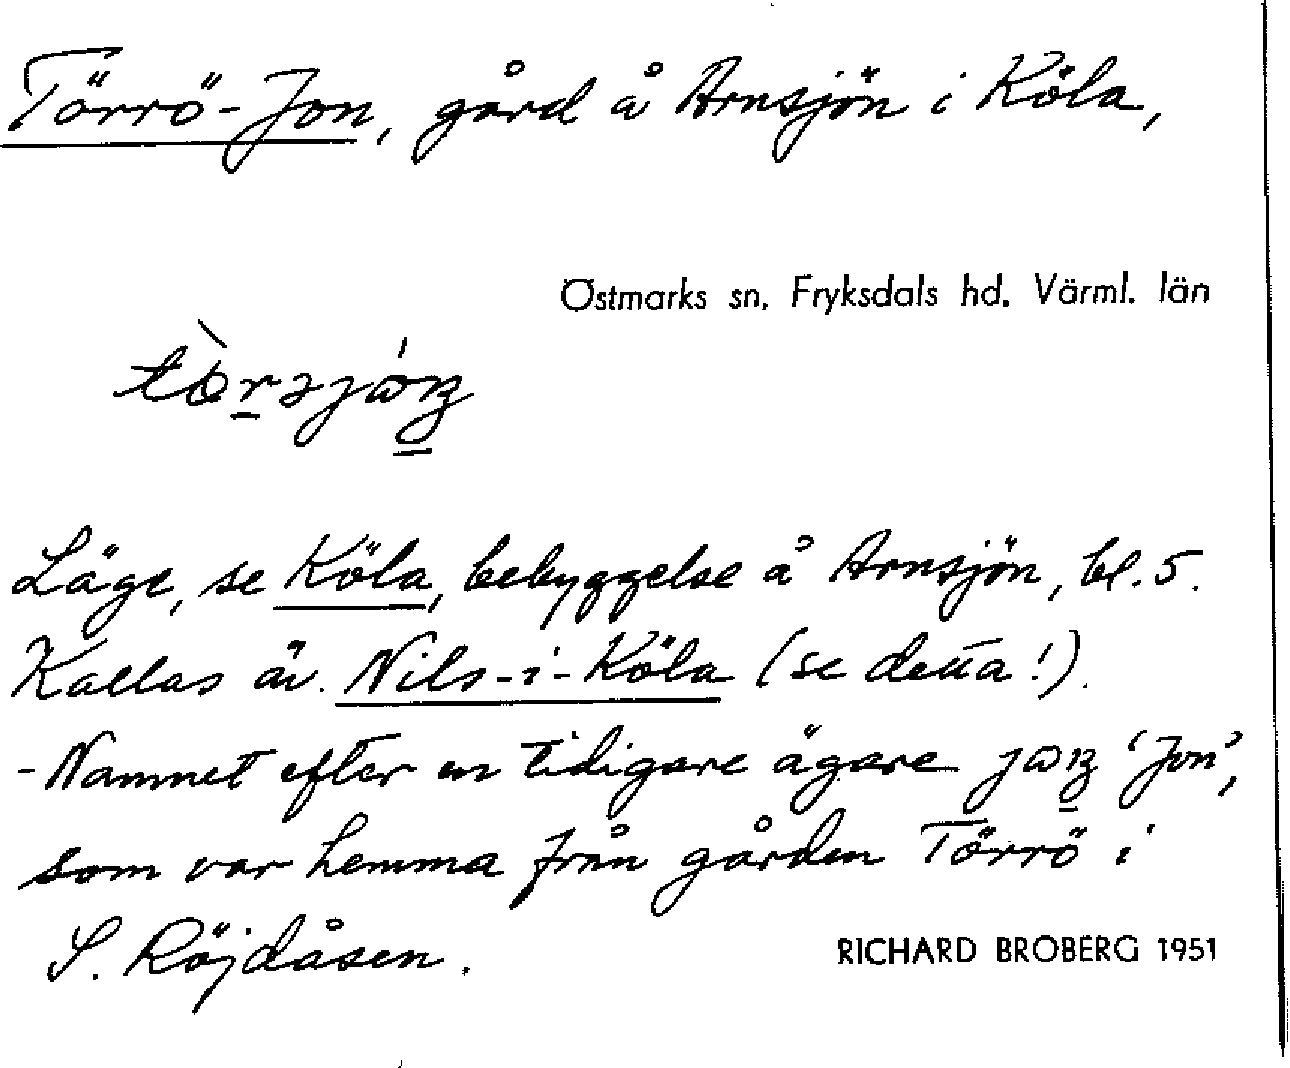 Törrö-Jon, gård å Arnsjön i Köla,
Östmarks sn. Fryksdals hd. Värml. län
Läge, se Köla, bebyggelse å Arnsjön, bl. 5.
Kallas äv. Nils-i-Köla (se detta!).
- Namnet efter en tidigare ägare 'Jon',
som var hemma från gården Törrö i
S. Röjdåsen.
RICHARD BROBERG 1951